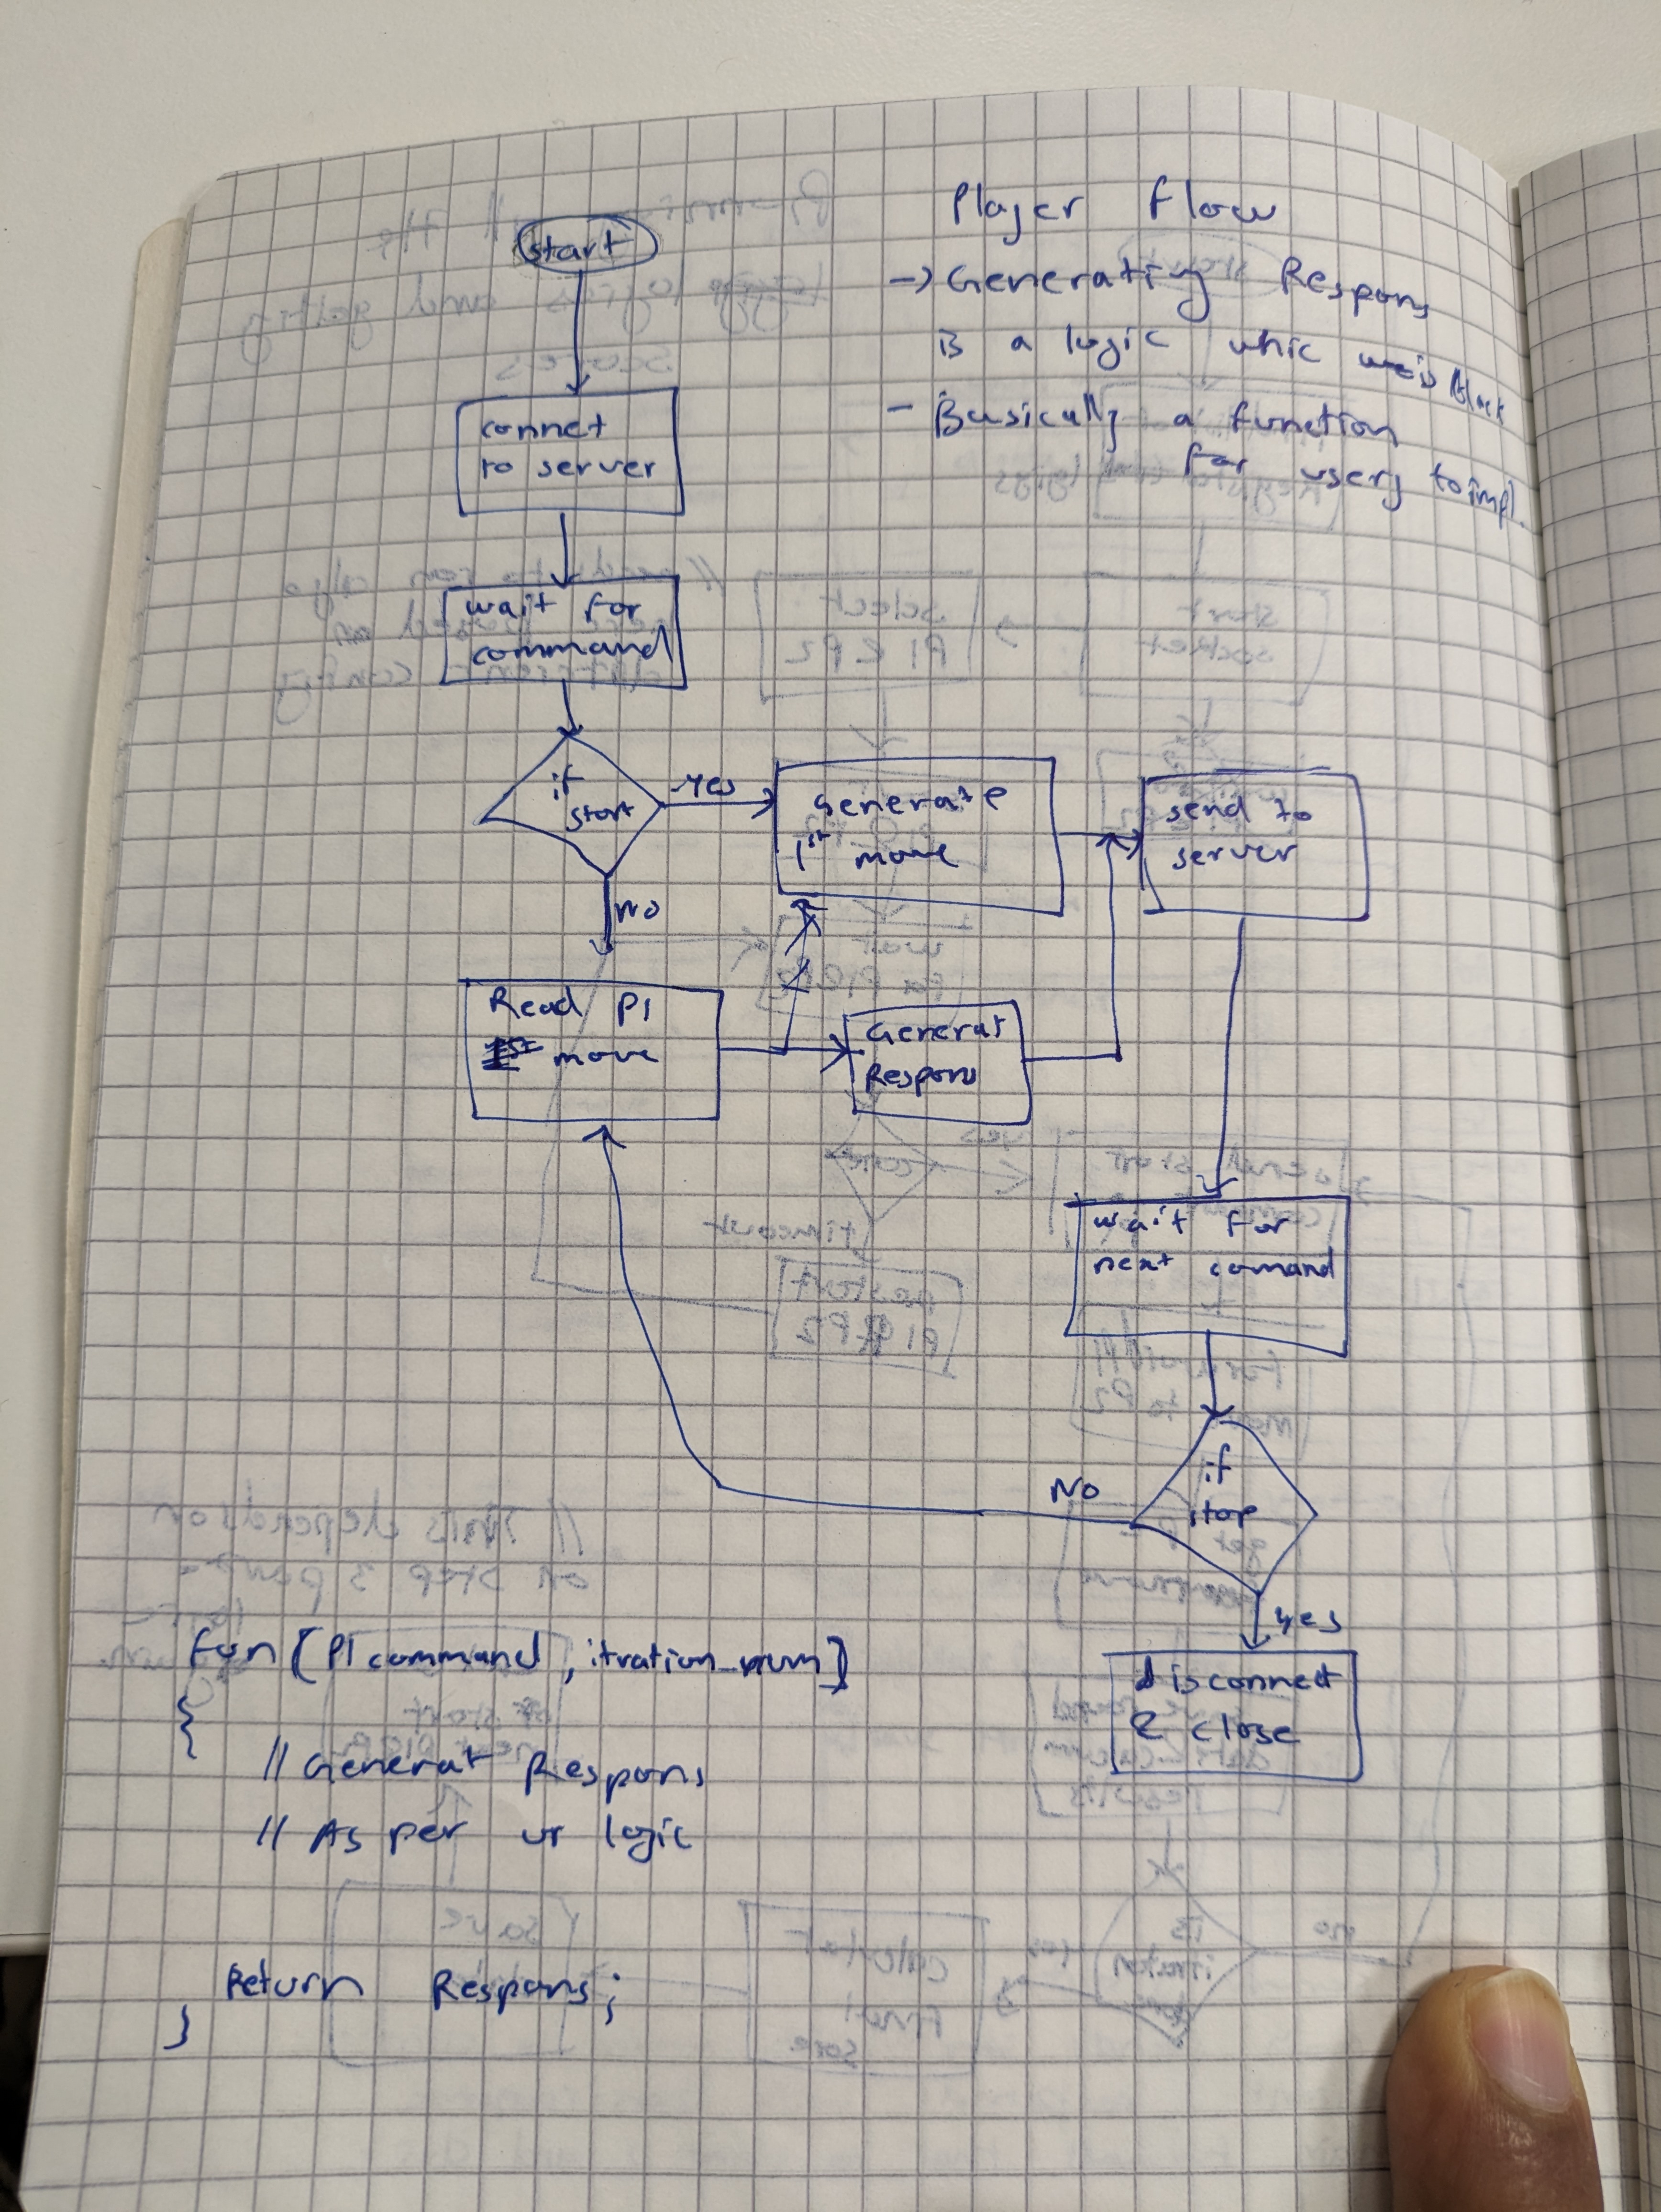 Player Flow
-> Generating Respons
is a logic whic
- Basically a function
for users to impl.
start
connet
to server
wait for
command
if
start
Yes
generate
1st move
send to
server
NO
Read P1
move
Generat
Respons
wait for
next comand
if
stop
No
yes
disconnect
& close
fun (P1 command, itration_num)
{
// Generat Respons
// As per ur logic
Return Respons;
}